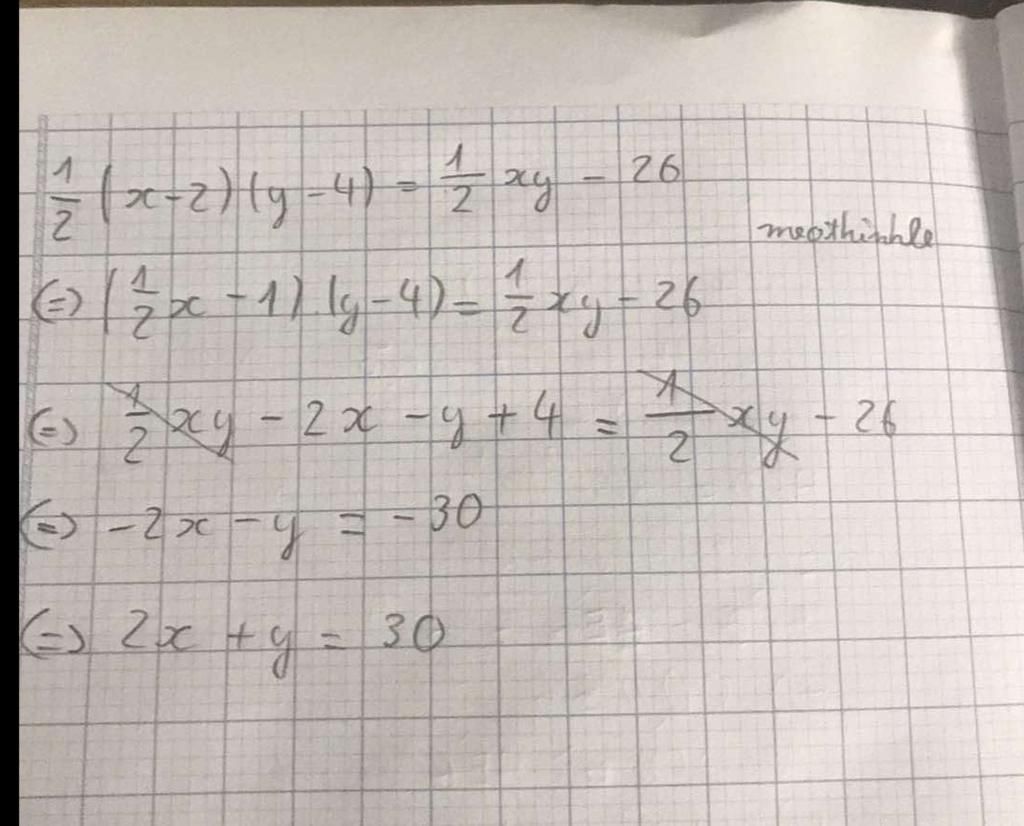 1/2 (x-2)(y-4) = 1/2 xy - 26
meothinhle
(=) (1/2 x - 1).(y-4) = 1/2 xy - 26
(=) 1/2 xy - 2x - y + 4 = 1/2 xy - 26
(=) -2x - y = -30
(=) 2x + y = 30